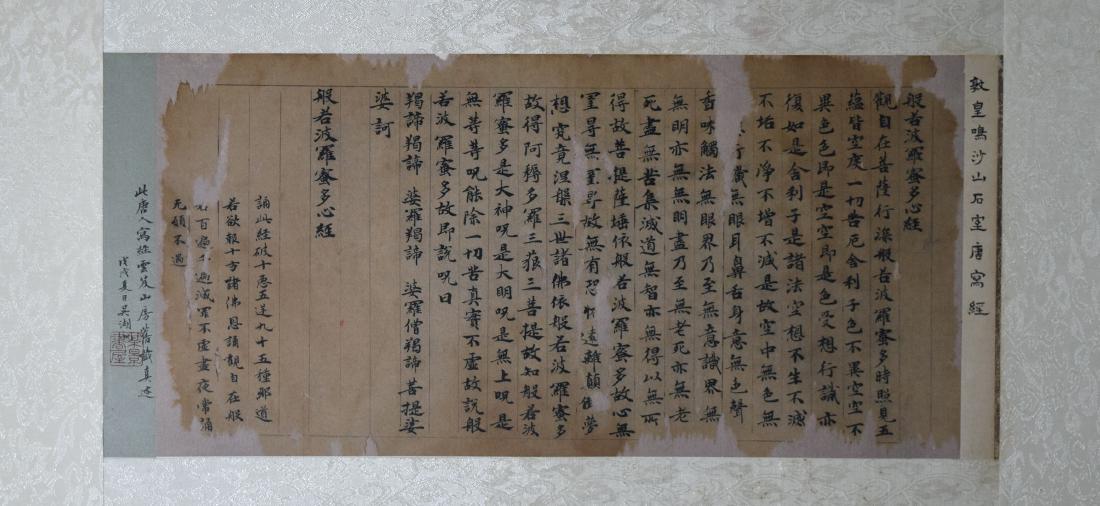 敦皇鳴沙山石室唐寫經
般若波羅蜜多心経
觀自在菩薩行深般若波羅蜜多時照見五
蘊皆空度一切苦厄舍利子色不異空空不
異色色即是空空即是色受想行識亦
復如是舍利子是諸法空想不生不滅
不垢不淨不增不減是故空中無色無
行識無眼耳鼻舌身意無色聲
香味觸法無眼界乃至無意識界無
無明亦無無明盡乃至無老死亦無老
死盡無苦集滅道無智亦無得以無所
得故菩提薩埵依般若波羅蜜多故心無
罣㝵無罣㝵故無有恐 遠離顛 夢
想究竟涅槃三世諸佛依般若波羅蜜多
故得阿耨多羅三狼三菩提故知般若波
羅蜜多是大神呪是大明呪是無上呪是
無等等呪能除一切苦真實不虛故說般
若波羅蜜多故即說呪曰
羯諦羯諦 婆羅羯諦 婆羅僧羯諦 菩提娑
婆訶
般若波羅蜜多心経
誦此経破十惡五逆九十五種邪道
若欲報十方諸佛恩誦觀自在般
百遍千遍滅罪不虛晝夜常誦
无願不過
此唐人寫経雲笈山房舊藏真迹
戊戌夏日吳湖